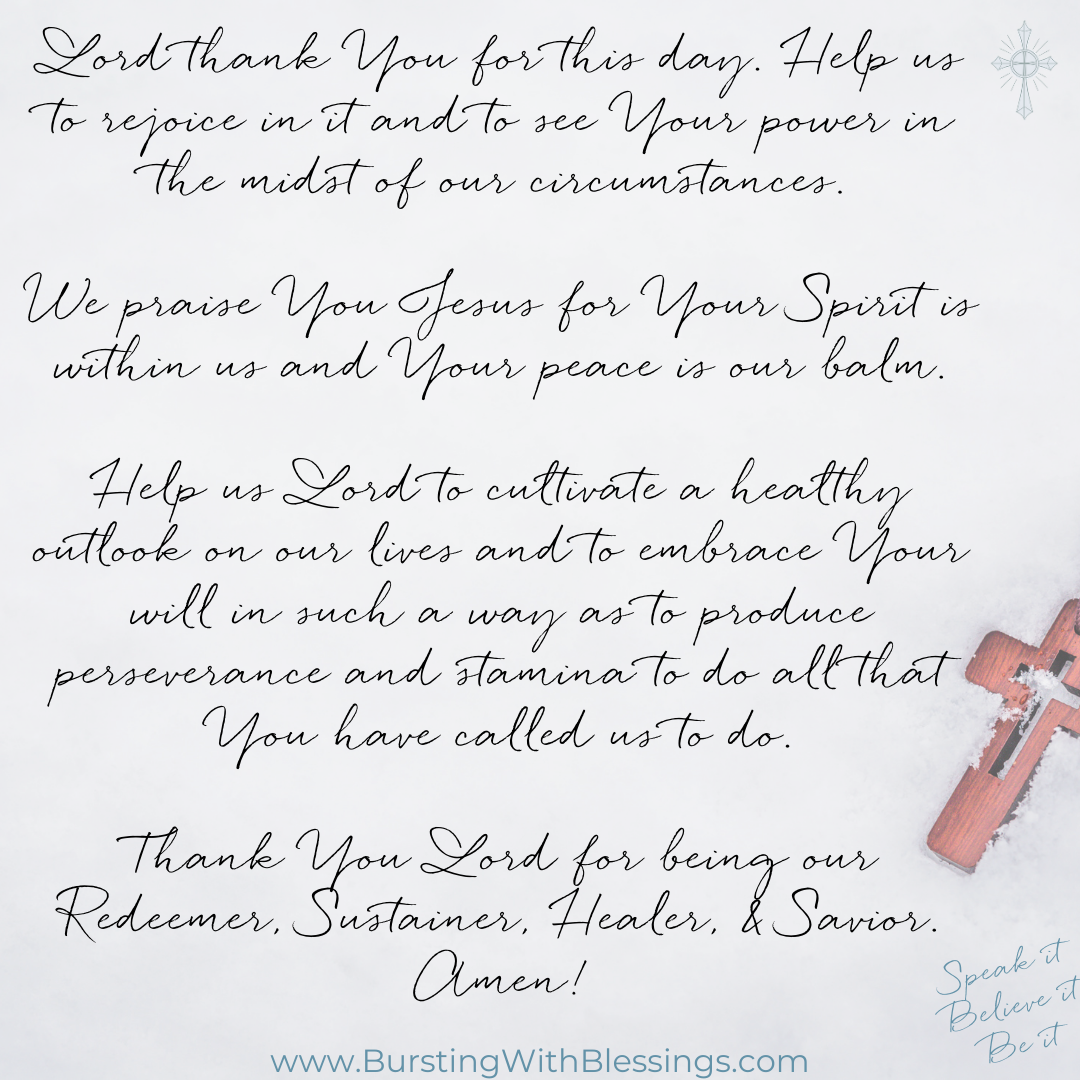 Lord thank You for this day. Help us
to rejoice in it and to see Your power in
the midst of our circumstances.
We praise You Jesus for Your Spirit is
within us and Your peace is our balm.
Help us Lord to cultivate a healthy
outlook on our lives and to embrace Your
will in such a way as to produce
perseverance and stamina to do all that
You have called us to do.
Thank You Lord for being our
Redeemer, Sustainer, Healer, & Savior.
Amen!
Speak it
Believe it
Be it
www.BurstingWithBlessings.com